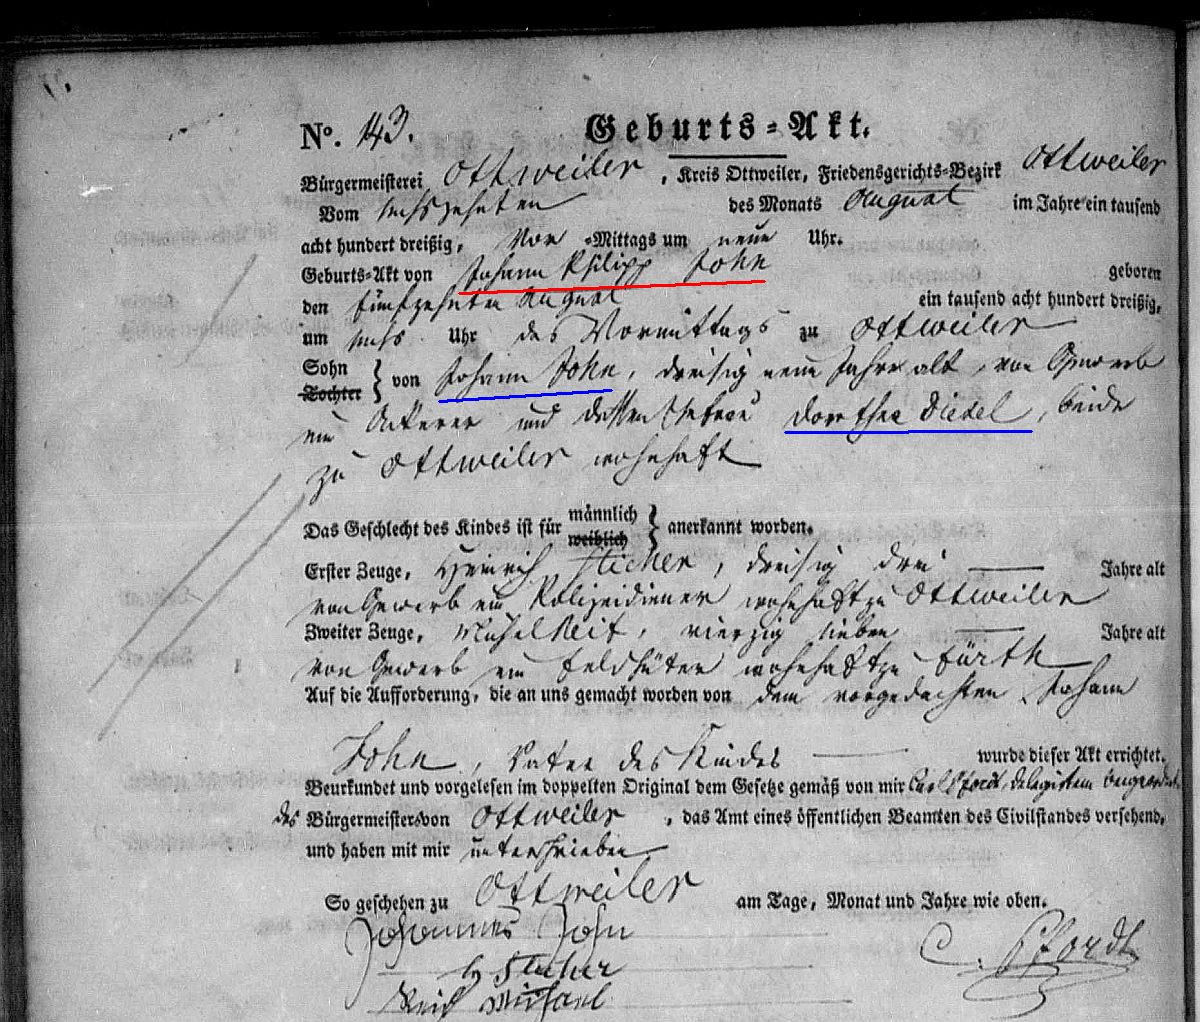 No. 143. Geburts-Akt.
Bürgermeisterei Ottweiler, Kreis Ottweiler, Friedensgerichts-Bezirk Ottweiler
Vom sechszehnten des Monats August im Jahre ein tausend
acht hundert dreißig, Vor-Mittags um neun Uhr.
Geburts-Akt von Johann Philipp John geboren
den fünfzehnten August ein tausend acht hundert dreißig,
um sechs Uhr des Vormittags zu Ottweiler
Sohn
Tochter
von Johann John, dreisig neun Jahre alt, von Gewerb
ein Ackerer und dessen Ehefrau Dorothea Diedel, beide
zu Ottweiler wohnhaft
Das Geschlecht des Kindes ist für männlich
weiblich
anerkannt worden.
Erster Zeuge, Heinrich Sticher, dreisig drei Jahre alt
von Gewerb ein Polizeidiener wohnhaft zu Ottweiler
Zweiter Zeuge, Michel Reif, vierzig sieben Jahre alt
von Gewerb ein Feldhüter wohnhaft zu Fürth
Auf die Aufforderung, die an uns gemacht worden von dem vorgedachten Johann
John, Vater des Kindes wurde dieser Akt errichtet.
Beurkundet und vorgelesen im doppelten Original dem Gesetze gemäß von mir Carl Pfordt
des Bürgermeisters von Ottweiler, das Amt eines öffentlichen Beamten des Civilstandes versehend,
und haben mit mir unterschrieben
So geschehen zu Ottweiler am Tage, Monat und Jahre wie oben.
Johannes John
C. Pfordt
H Sticher
Michael